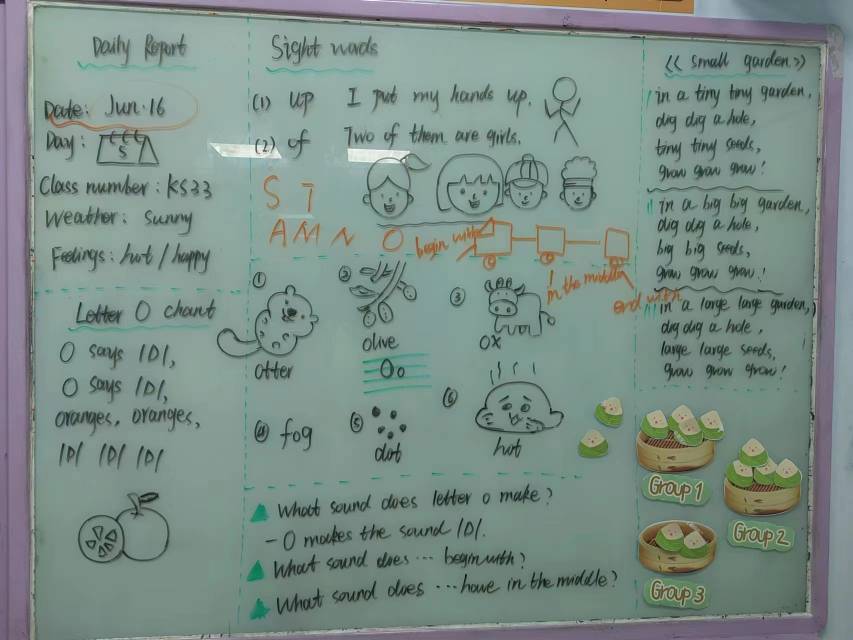 Daily Report
Date: Jun.16
Day: 5
Class number: KS33
Weather: Sunny
Feelings: hot / happy
Letter O chant
O says /ɒ/,
O says /ɒ/,
oranges, oranges,
/ɒ/ /ɒ/ /ɒ/
Sight words
(1) up I put my hands up.
(2) of Two of them are girls.
S T
A M N N O begin with
in the middle
end with
① otter
② olive
③ ox
Oo
④ fog
⑤ dot
⑥ hot
What sound does letter o make?
- O makes the sound /ɒ/.
What sound does ... begin with?
What sound does ... have in the middle?
<< Small garden >>
in a tiny tiny garden,
dig dig a hole,
tiny tiny seeds,
grow grow grow!
in a big big garden,
dig dig a hole,
big big seeds,
grow grow grow!
in a large large garden,
dig dig a hole,
large large seeds,
grow grow grow!
Group 1
Group 2
Group 3